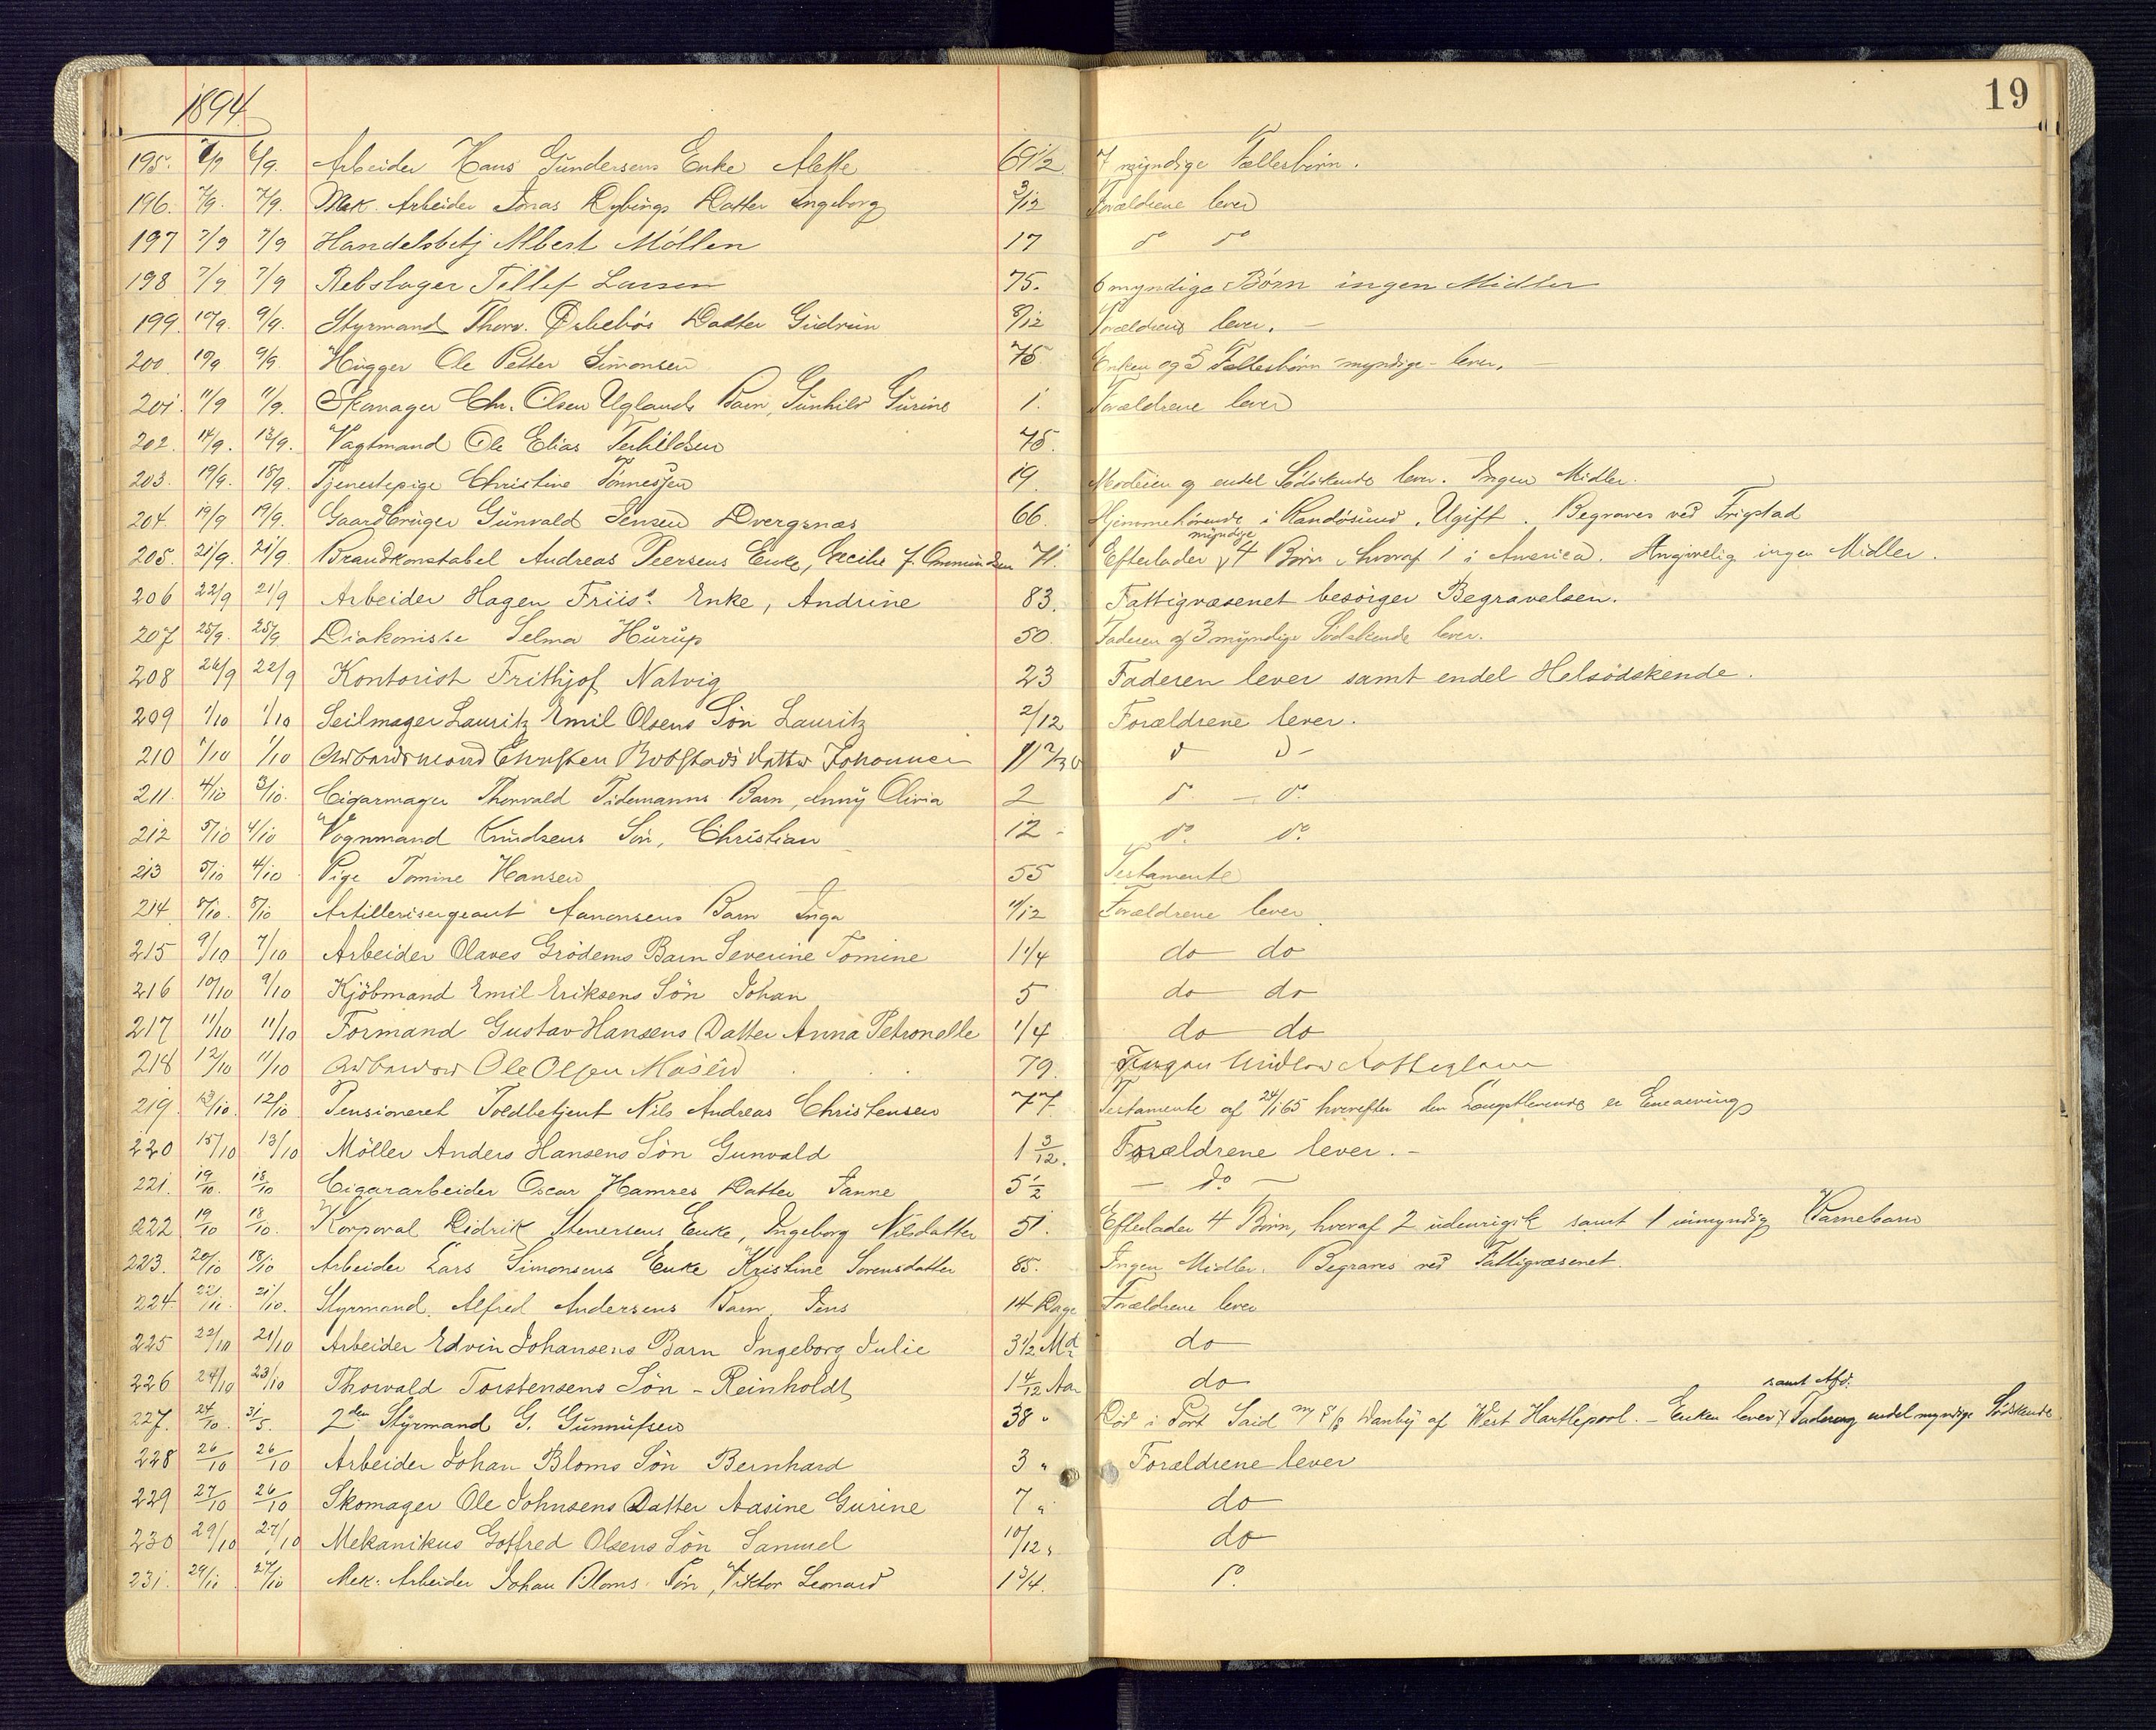 19
1894
195. 6/9 6/9. Arbeider Hans Gundersens Enke Alette 69 1/2 7 myndige Fællesbørn.
196. 7/9. 7/9. Mek. Arbeider Jonas Dybings Datter Ingeborg 3/12 Forældrene lever
197 7/9 7/9 Handelsbetj Albert Möllen 17 do do
198 7/9 7/9 Rebslager Tellef Larsen 75. 6 myndige Børn ingen Midler
199. 10/9. 9/9. Styrmand Thorv. Datter Gudrun 8/12 Forældrene lever. –
200 10/9 9/9. Hugger Ole Petter Simonsen 75 Enken og 5 Fællesbørn - myndige - lever.
201. 11/9 11/9. Skomager Chr. Olsen Uglands Barn, Gunhild Gurine 1. Forældrene lever
202. 14/9. 13/9. Vagtmand Ole Elias Terkildsen 75.
203. 19/9. 18/9. Tjenestepige Christine Tönnessen 19. Moderen og endel Sødskende lever. Ingen Midler.
204. 19/9 19/9. Gaardbruger Gunvald Jensen Dvergsnæs 66. Hjemmehørende i Randøsund. Ugift. Begraves ved Frigstad
myndige
205. 21/9. 21/9. Brandkonstabel Andreas Peersens Enke, Cecilie f. Ommundsen 71. Efterlader 4 Børn, hvoraf 1 i America. Angivelig ingen Midler.
206 22/9 21/9 Arbeider Hagen Friis's Enke, Andrine 83. Fattigvæsenet besörger Begravelsen.
207 25/9. 25/9 Diakonisse Selma Hurup 50. Faderen og 3 myndige Sødskende lever.
208 26/9 22/9 Kontorist Frithjof Natvig 23 Faderen lever samt endel Helsödskende.
209 1/10 1/10 Seilmager Lauritz Emil Olsens Sön Lauritz 2/12 Forældrene lever.
210 1/10 1/10 Christen Datter Johanne do do –
211. 4/10 3/10. Cigarmager Thorvald Tidemanns Barn, Anny Olivia 2 do – do.
212 5/10 4/10 Vognmand Knudsens Søn, Christian 12 - do. do.
213 5/10 4/10. Pige Tomine Hansen 55 Testamente
214 8/10. 8/10 Artillerisergeant Aanonsens Barn Inga 11/12 Forældrene lever
215 9/10 7/10 Arbeider Olaves Grödems Barn Severine Tomine 1 1/4 do do
216 10/10 9/10 Kjöbmand Emil Eriksens Sön Johan 5 do do
217 11/10 11/10 Formand Gustav Hansens Datter Anna Petronelle 1/4 do do
218 12/10 11/10 Ole Olsen 79. Ingen Midler
219. 13/10. 12/10 Pensioneret Toldbetjent Nils Andreas Christensen 77 Testamente af 24/1 65 hvorefter den Længstlevende er Enearving
220 15/10 13/10 Möller Anders Hansens Sön Gunvald 1 3/12. Forældrene lever. –
221. 19/10. 18/10 Cigararbeider Oscar Hamres Datter Janne 5 1/2 – do –
222 19/10 18/10. Korporal Didrik Stenersens Enke, Ingeborg Nilsdatter 51. Efterlader 4 Børn, hvoraf 2 udenrigsk samt 1 umyndig Barnebarn
223. 20/10 18/10 Arbeider Lars Simonsens Enke Kristine Sorensdatter 85. Ingen Midler. Begraves ved Fattigvæsenet.
224. 22/10. 21/10. Styrmand Alfred Andersens Barn, Jens 14 Dage Forældrene lever
225 22/10 21/10 Arbeider Edvin Johansens Barn Ingeborg Julie 3 1/2 Md do
226 24/10 23/10 Thorvald Torstensens Sön - Reinholdt 1 4/12 Aar do
samt Afd.
227. 24/10. 31/5. 2den Styrmand G. Gunnufsen 38 " Død i Port Said m/ S/S Danby af West Hartlepool. – Enken lever, Faderen og endel myndige Sødskende
228 26/10 26/10 Arbeider Johan Bloms Sön Bernhard 3 " Forældrene lever
229 27/10 26/10 Skomager Ole Johnsens Datter Aasine Gurine 7 " do
230 29/10 27/10 Mekanikus Gotfred Olsens Sön Samuel 10/12 " do
231. 29/10 27/10 Mek. Arbeider Johan Bloms Søn, Viktor Leonard 1 3/4. do.